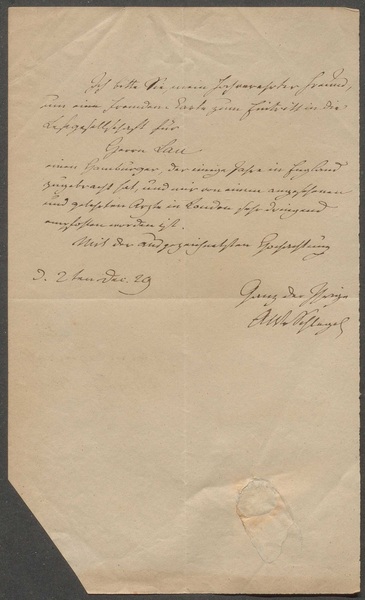 Ich bitte Sie mein hochverehrter Freund,
um eine Fremden-Karte zum Eintritt in die
Lesegesellschaft für
Herrn Lau
einen Hamburger, der einige Jahre in England
zugebracht hat, und mir von einem angesehenen
und gelehrten Arzte in London sehr dringend
empfohlen worden ist.
Mit der ausgezeichnetsten Hochachtung
d. 2ten Dec. 29
Ganz der Ihrige
AWvSchlegel